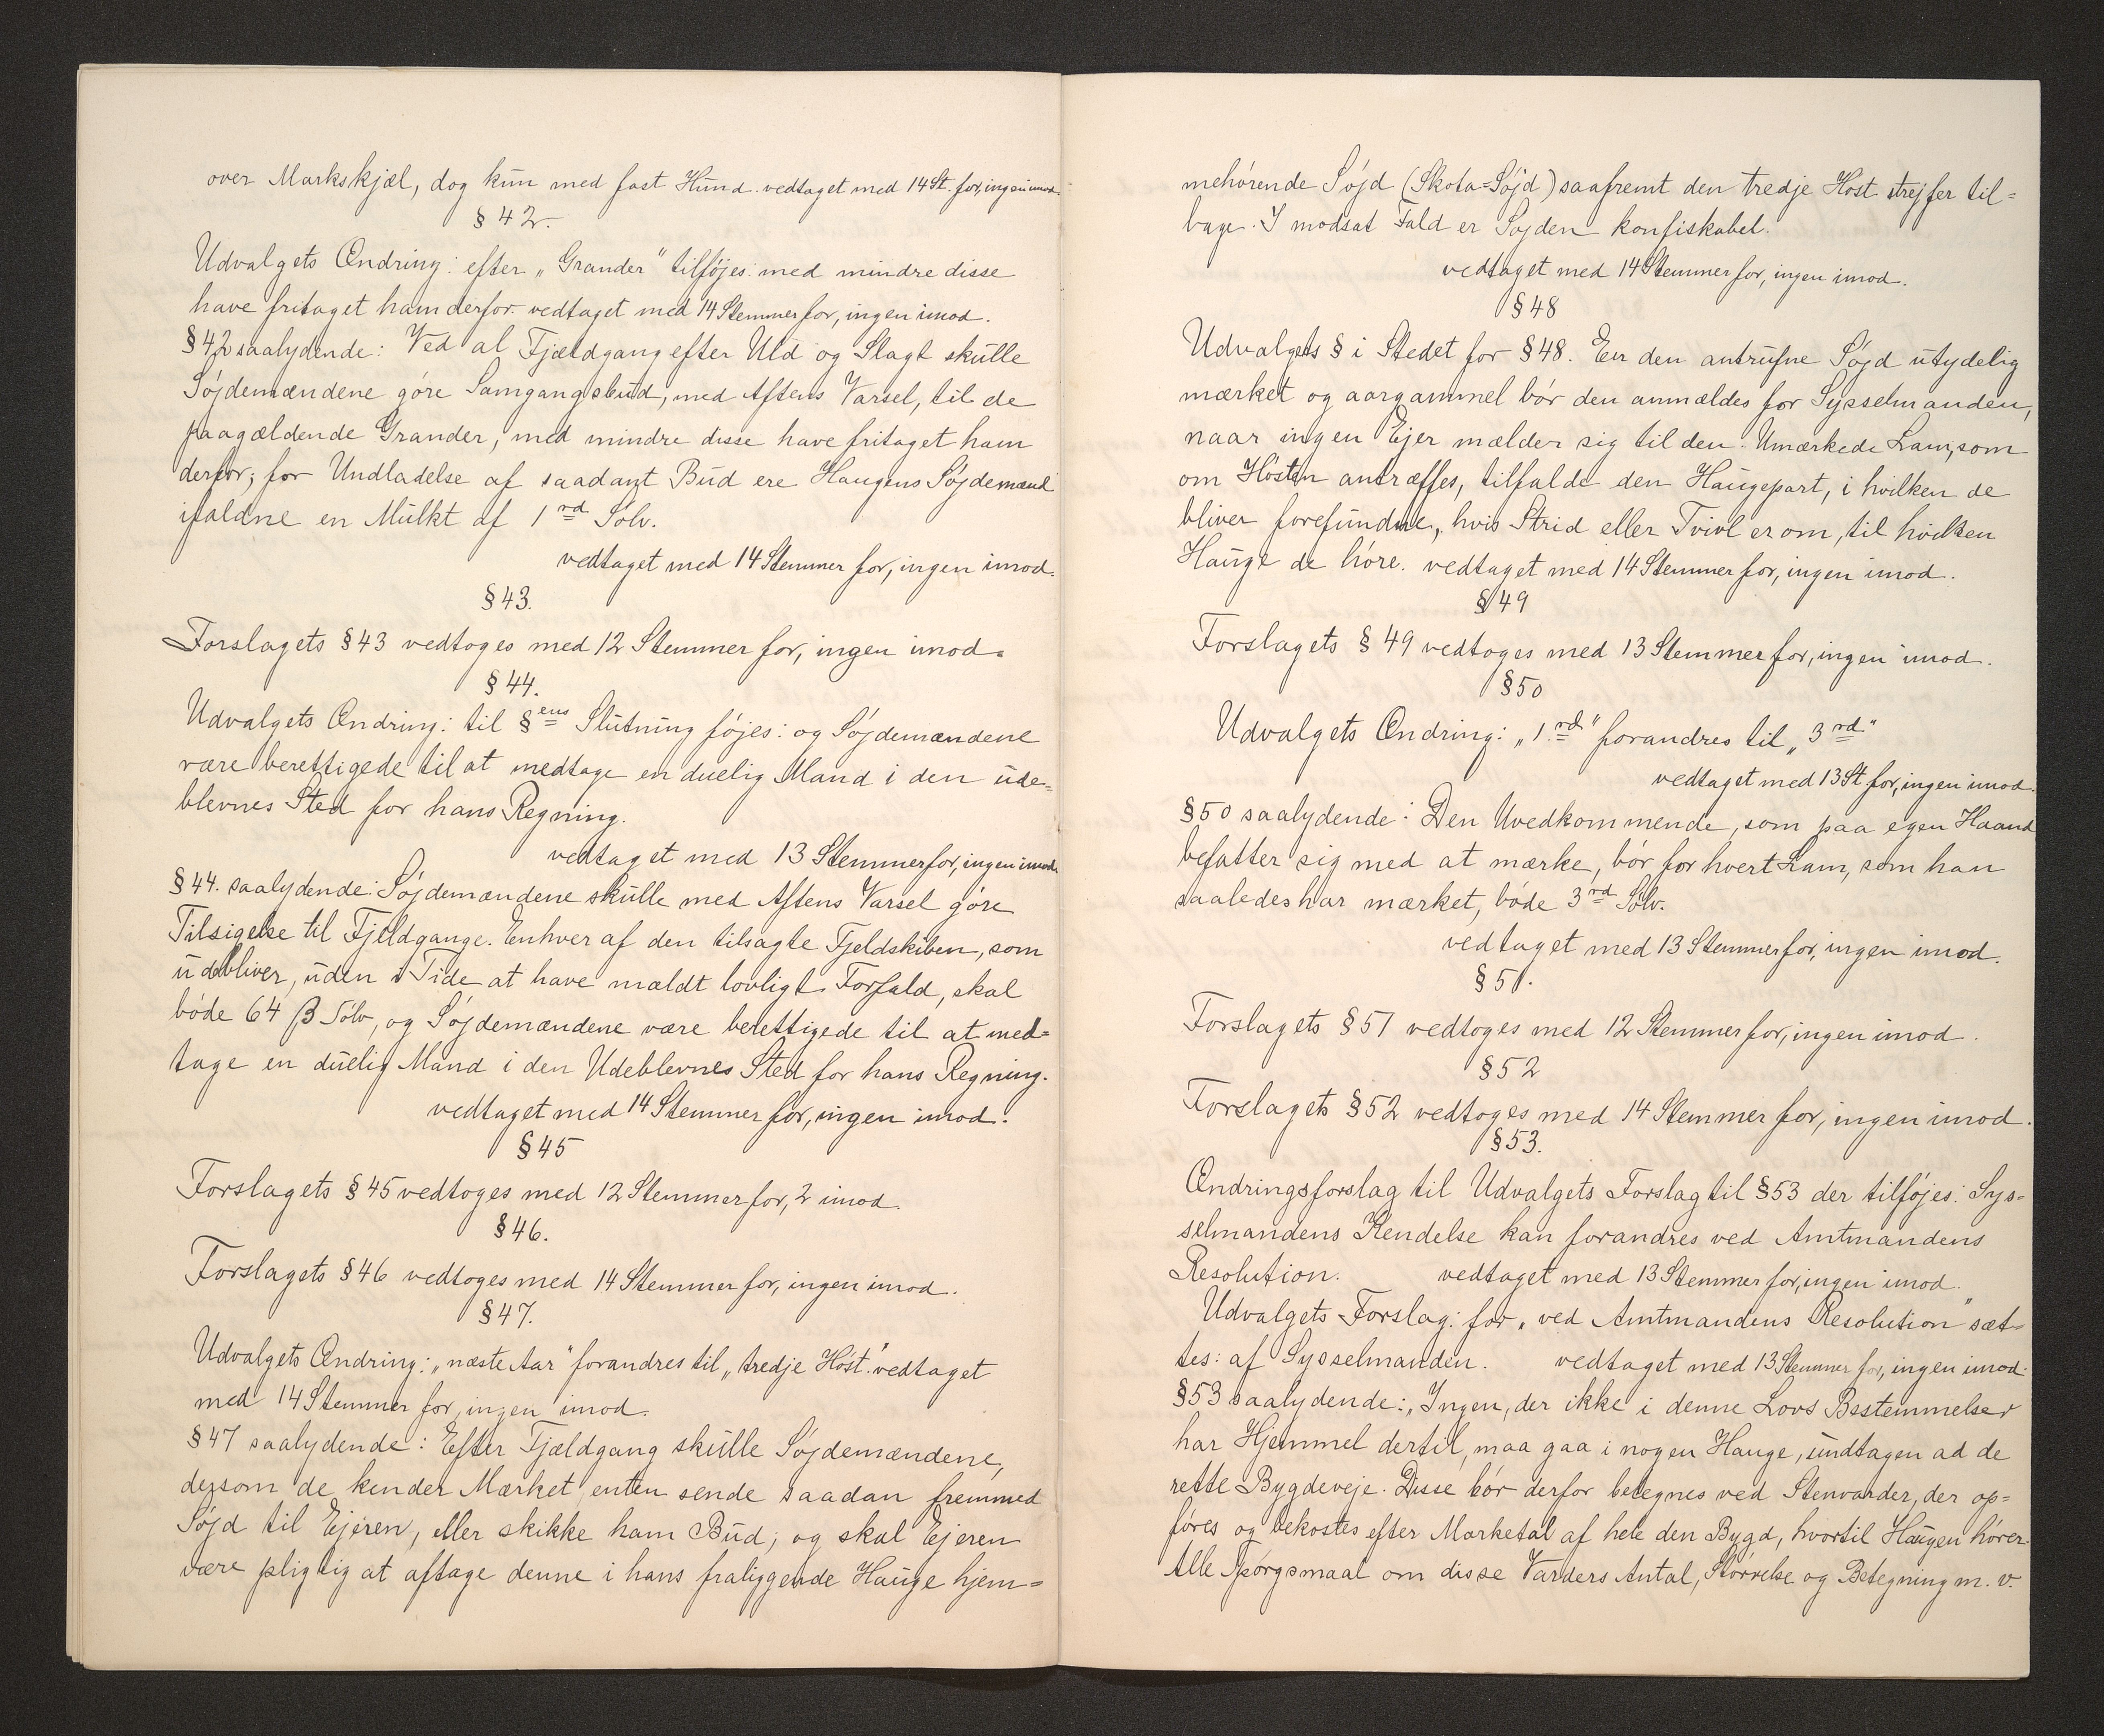 over Markskjæl, dog kun med fast Hund. vedtaget med 14 St. for, ingen imod.
§ 42.
Udvalgets Ændring: efter „Grander“ tilföjes: med mindre disse
have fritaget ham derfor. vedtaget med 14 Stemmer for, ingen imod.
§ 42 saalydende: Ved al Fjældgang efter Uld og Slagt skulle
Söjdemændene göre Samgangsbud, med Aftens Varsel, til de
paagældende Grander, med mindre disse have fritaget ham
derfor; for Undladelse af saadant Bud ere Haugens Söjdemænd
ifaldne en Mulkt af 1 rd Sölv.
vedtaget med 14 Stemmer for, ingen imod.
§ 43.
Forslagets § 43 vedtoges med 12 Stemmer for, ingen imod.
§ 44.
Udvalgets Ændring: til § ens Slutning föjes: og Söjdemændene
være berettigede til at medtage en duelig Mand i den ude=
blevnes Sted for hans Regning.
vedtaget med 13 Stemmer for, ingen imod.
§ 44. saalydende: Söjdemændene skulle med Aftens Varsel göre
Tilsigelse til Fjeldgange. Enhver af den tilsagte Fjeldskiben, som
udebliver, uden i Tide at have mældt lovligt Forfald, skal
böde 64 β Sölv, og Söjdemændene være berettigede til at med=
tage en duelig Mand i den Udeblevnes Sted for hans Regning.
vedtaget med 14 Stemmer for, ingen imod.
§ 45
Forslagets § 45 vedtoges med 12 Stemmer for, 2 imod.
§ 46.
Forslagets § 46 vedtoges med 14 Stemmer for, ingen imod.
§ 47.
Udvalgets Ændring: „næste Aar“ forandres til „tredje Höst.“ vedtaget
med 14 Stemmer for, ingen imod.
§ 47 saalydende: Efter Fjældgang skulle Söjdemændene,
dersom de kender Mærket, enten sende saadan fremmed
Söjd til Ejeren, eller skikke ham Bud; og skal Ejeren
være pligtig at aftage denne i hans fraliggende Hauge hjem=
mehörende Söjd (Skota=Söjd) saafremt den tredje Höst strejfer til=
bage. I modsat Fald er Söjden konfiskabel.
vedtaget med 14 Stemmer for, ingen imod.
§ 48
Udvalgets § i Stedet for § 48. Er den antrufne Söjd utydelig
mærket og aargammel bör den anmældes for Sysselmanden,
naar ingen Ejer mælder sig til den. Umærkede Lam, som
om Hösten antræffes, tilfalde den Haugepart, i hvilken de
bliver forefundne, hvis Strid eller Tvivl er om, til hvilken
Hauge de höre. vedtaget med 14 Stemmer for, ingen imod.
§ 49
Forslagets § 49 vedtoges med 13 Stemmer for, ingen imod.
§ 50
Udvalgets Ændring: „1 rd“ forandres til „3 rd“
vedtaget med 13 St for, ingen imod.
§ 50 saalydende: Den Uvedkommende, som paa egen Haand
befatter sig med at mærke, bör for hvert Lam, som han
saaledes har mærket, böde 3 rd Sölv.
vedtaget med 13 Stemmer for, ingen imod.
§ 51.
Forslagets § 51 vedtoges med 12 Stemmer for, ingen imod.
§ 52
Forslagets § 52 vedtoges med 14 Stemmer for, ingen imod.
§ 53.
Ændringsforslag til Udvalgets Forslag til § 53 der tilföjes: Sys=
selmandens Kendelse kan forandres ved Amtmandens
Resolution. vedtaget med 13 Stemmer for, ingen imod.
Udvalgets Forslag: for „ved Amtmandens Resolution“ sæt=
tes: af Sysselmanden. vedtaget med 13 Stemmer for, ingen imod.
§ 53 saalydende: „Ingen, der ikke i denne Lovs Bestemmelser
har Hjemmel dertil, maa gaa i nogen Hauge, undtagen ad de
rette Bygdeveje. Disse bör derfor betegnes ved Stenvarder, der op=
föres og bekostes efter Marketal af hele den Bygd, hvortil Haugen hörer.
Alle Spörgsmaal om disse Varders Antal, Störrelse og Betegning m. v.